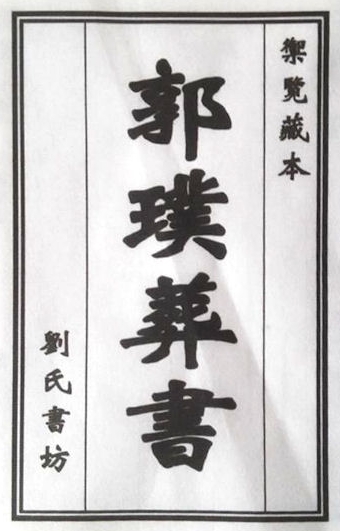 禦覽藏本
郭璞葬書
劉氏書坊